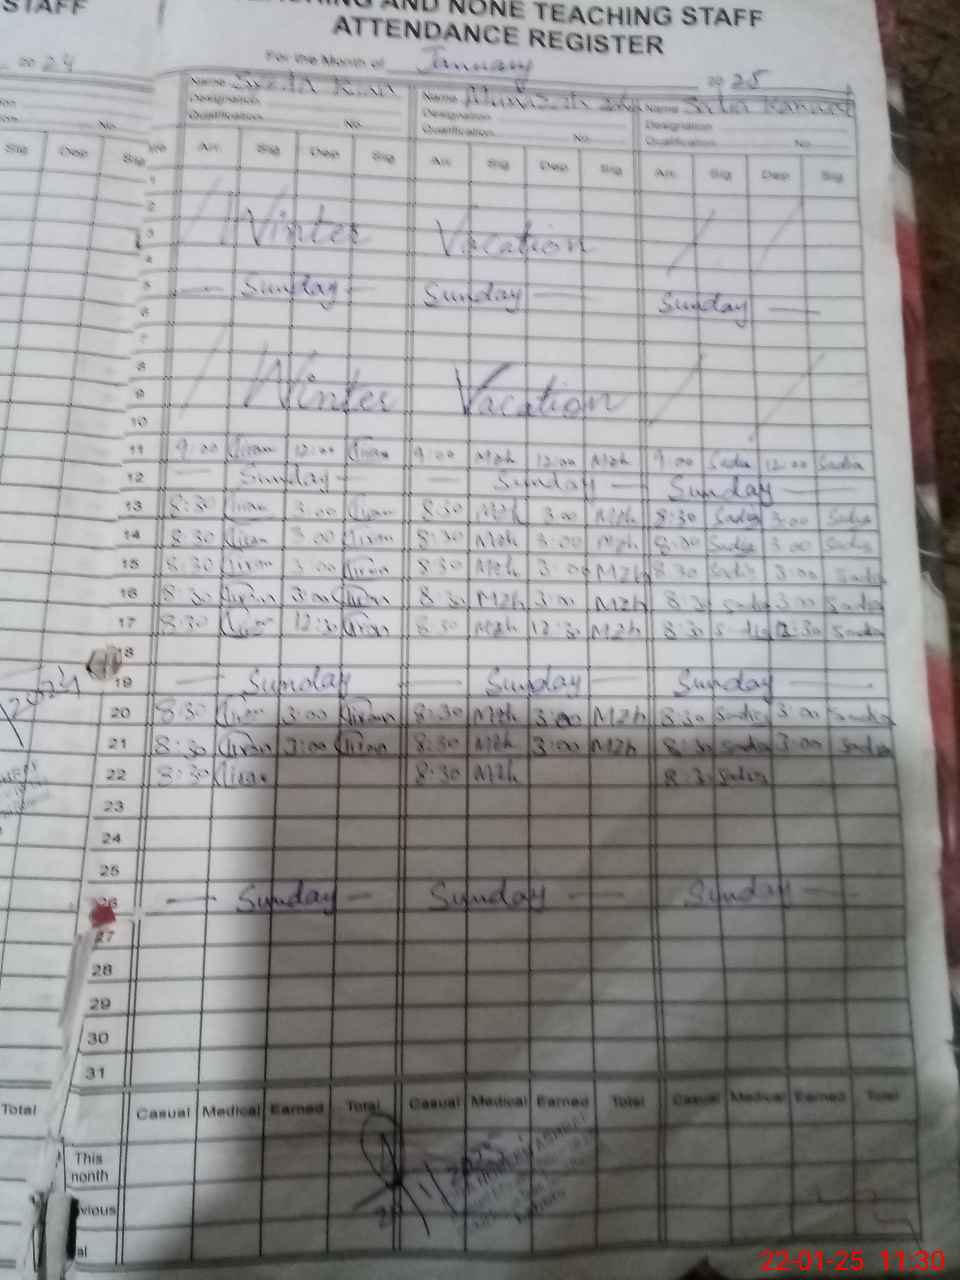 STAFF
TEACHING AND NONE TEACHING STAFF
ATTENDANCE REGISTER
For the Month of January 2025
2024
Name Kiran Name Name Sadia
Designation Designation Designation
Qualification No. Qualification No. Qualification No.
Sig Dep Sig Arr. Sig Dep Sig Arr. Sig Dep Sig Arr. Sig Dep Sig
1
2
3 Winter Vacation
4
5 — Sunday — Sunday — Sunday —
6
7
8
9 Winter Vacation
10
11 9:00 Kiran 12:00 Kiran 9:00 Mzh 12:00 Mzh 9:00 Sadia 12:00 Sadia
12 — Sunday — — Sunday — Sunday —
13 8:30 Kiran 3:00 Kiran 8:30 Mzh 3:00 Mzh 8:30 Sadia 3:00 Sadia
14 8:30 Kiran 3:00 Kiran 8:30 Mzh 3:00 Mzh 8:30 Sadia 3:00 Sadia
15 8:30 Kiran 3:00 Kiran 8:30 Mzh 3:00 Mzh 8:30 Sadia 3:00 Sadia
16 8:30 Kiran 3:00 Kiran 8:30 Mzh 3:00 Mzh 8:30 Sadia 3:00 Sadia
17 8:30 Kiran 12:30 Kiran 8:30 Mzh 12:30 Mzh 8:30 Sadia 12:30 Sadia
18
19 — Sunday — Sunday — Sunday —
20 8:30 Kiran 3:00 Kiran 8:30 Mzh 3:00 Mzh 8:30 Sadia 3:00 Sadia
21 8:30 Kiran 3:00 Kiran 8:30 Mzh 3:00 Mzh 8:30 Sadia 3:00 Sadia
22 8:30 Kiran 8:30 Mzh 8:3 Sadia
23
24
25
26 — Sunday — Sunday — Sunday —
27
28
29
30
31
Total Casual Medical Earned Total Casual Medical Earned Total Casual Medical Earned Total
This month
vious
al
22-01-25 11:30